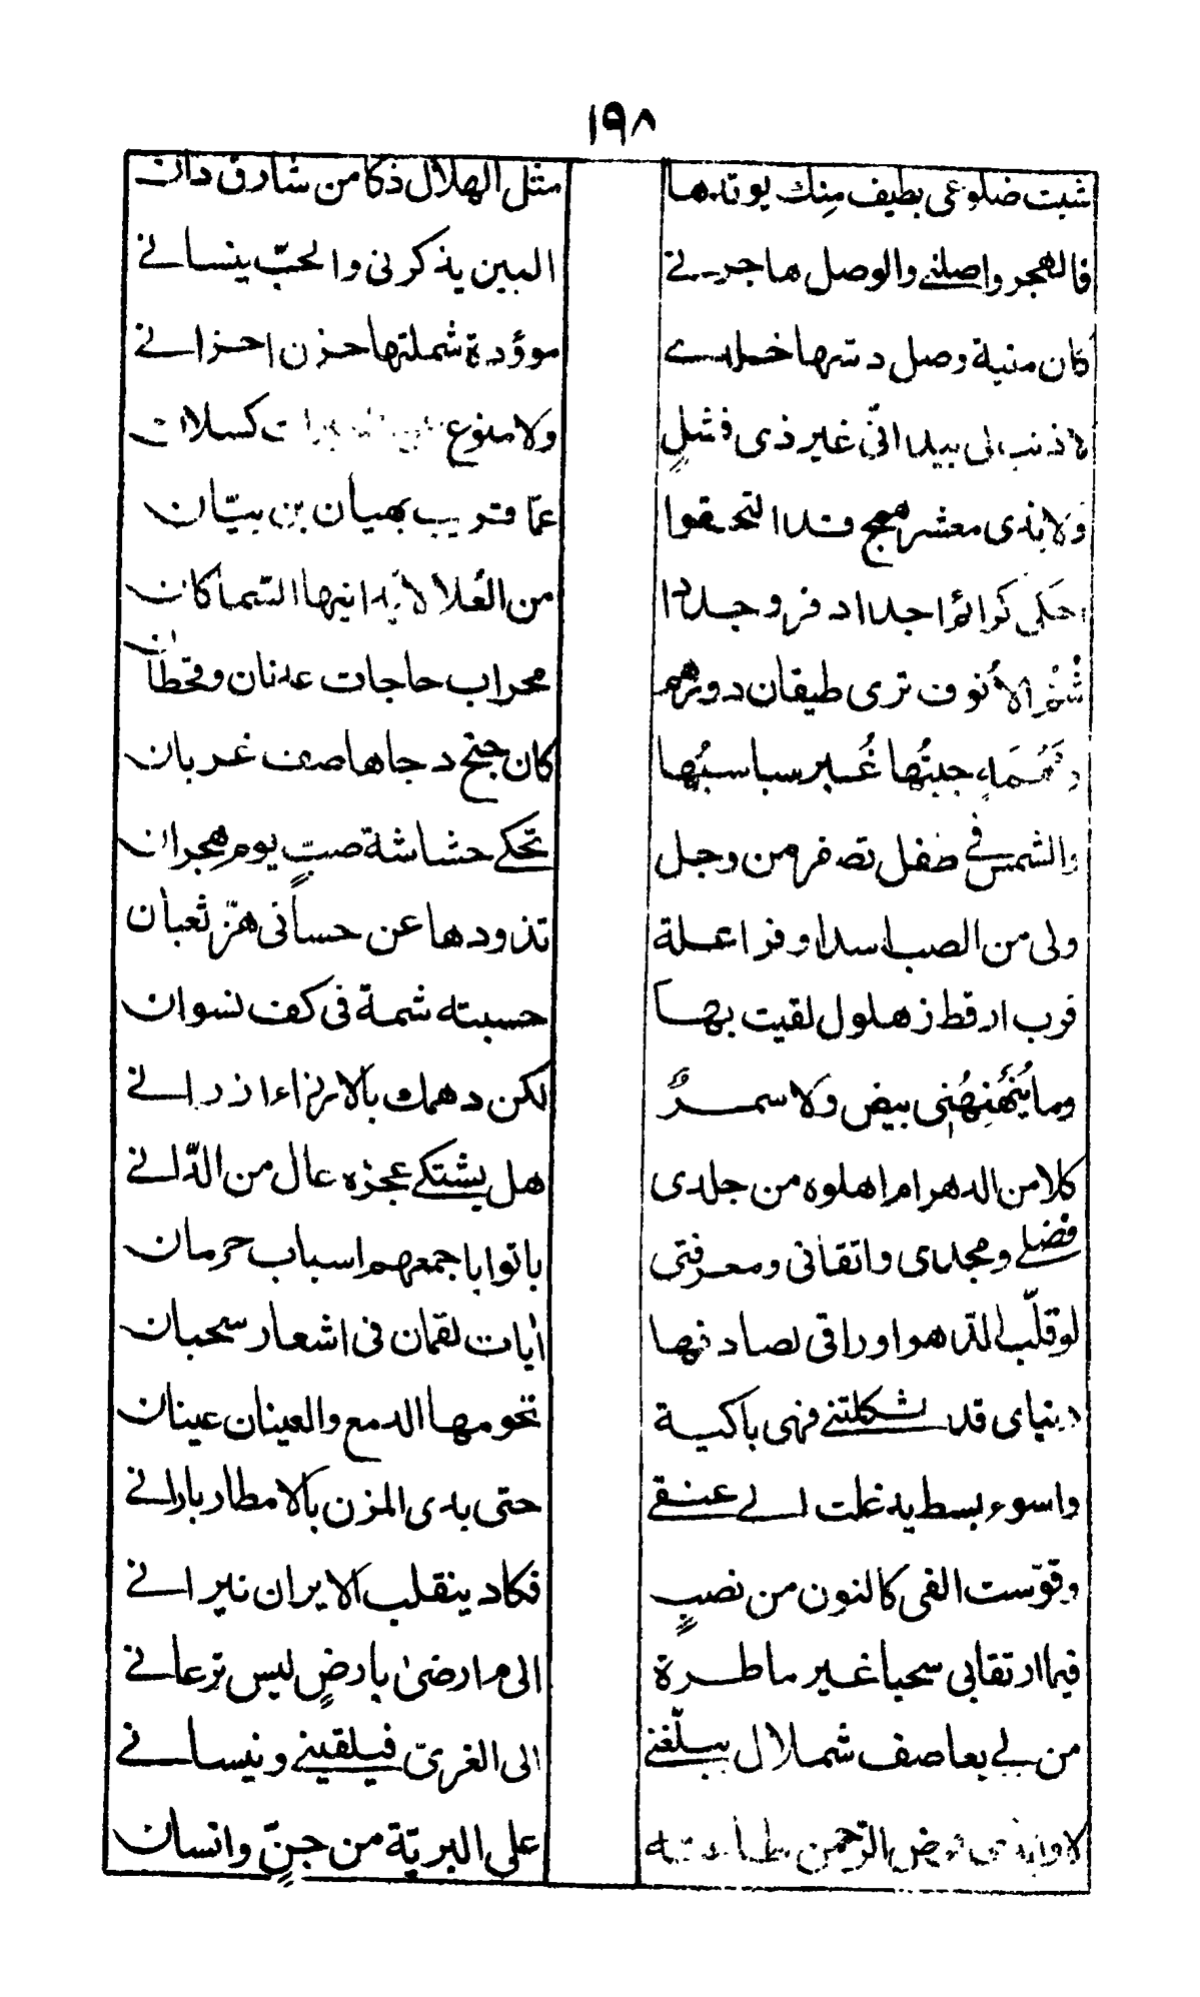 ١٩٨
شبت ضلوعی بطیف منك یوقدها مثل الهلال ذکا من شارق دان
فالهجر واصلنے والوصل هاجرنے البین یذکرنی والحبّ ینسانے
کان منیة وصل دسها خلدے موؤدة شملتها حزن احزانے
لا ذنب لی بیدا انّی غیر ذی فشلٍ ولا منوع کسلان
ولا بذی معشر همج قد التحقوا عمّا قریب بهیان بن بیّان
احکی کرائم اجدادی من العُلا لا یدانیها السّماکان
شُمّ الأنوف تری طیقان دورهم محراب حاجات عدنان وقحطان
جبتُها غُبر سباسبُها کان جنح دجاها صف غربان
والشمس فی طفل تصفر من وجل تحکے حشاشة صبٍ یوم هجران
ولی من الصب اسدا وفر اعلة تذودها عن حسانی هزّ ثعبان
فرب ارقط زهلول لقیت بها حسبته شمة فی کف نسوان
وما یُنَهْنِهُنِی بیض ولا سمرٌ لکن دهمك بالارزاء ازرانے
کلا من الدهر ام اهلوه من جلدی هل یشتکے عجزه عال من الدّانے
فضلے ومجدی واتقانی ومعرفتی باتوا باجمعهم اسباب حرمان
لو قلّب الدّهر اوراقی لصادفها اٰیات لقمان فی اشعار سحبان
دنیای قد ثکلتنے فهی باکیة نحومها الدمع والعینان عینان
واسوء بسط ید غلت الے عنقے حتی بدی المزن بالامطار بارانے
وقوّست الفی کالنون من نصبٍ فکاد ینقلب الایران نیرانے
فیما ارتقابی سحبا غیر ماطرة الی م ارضیٰ بارضٍ لیس ترعانے
من لے بعاصف شملال یبلّغنے الی الغریّ فیلقینے وینسانے
الرّحمن علی البریّة من جنٍّ وانسان